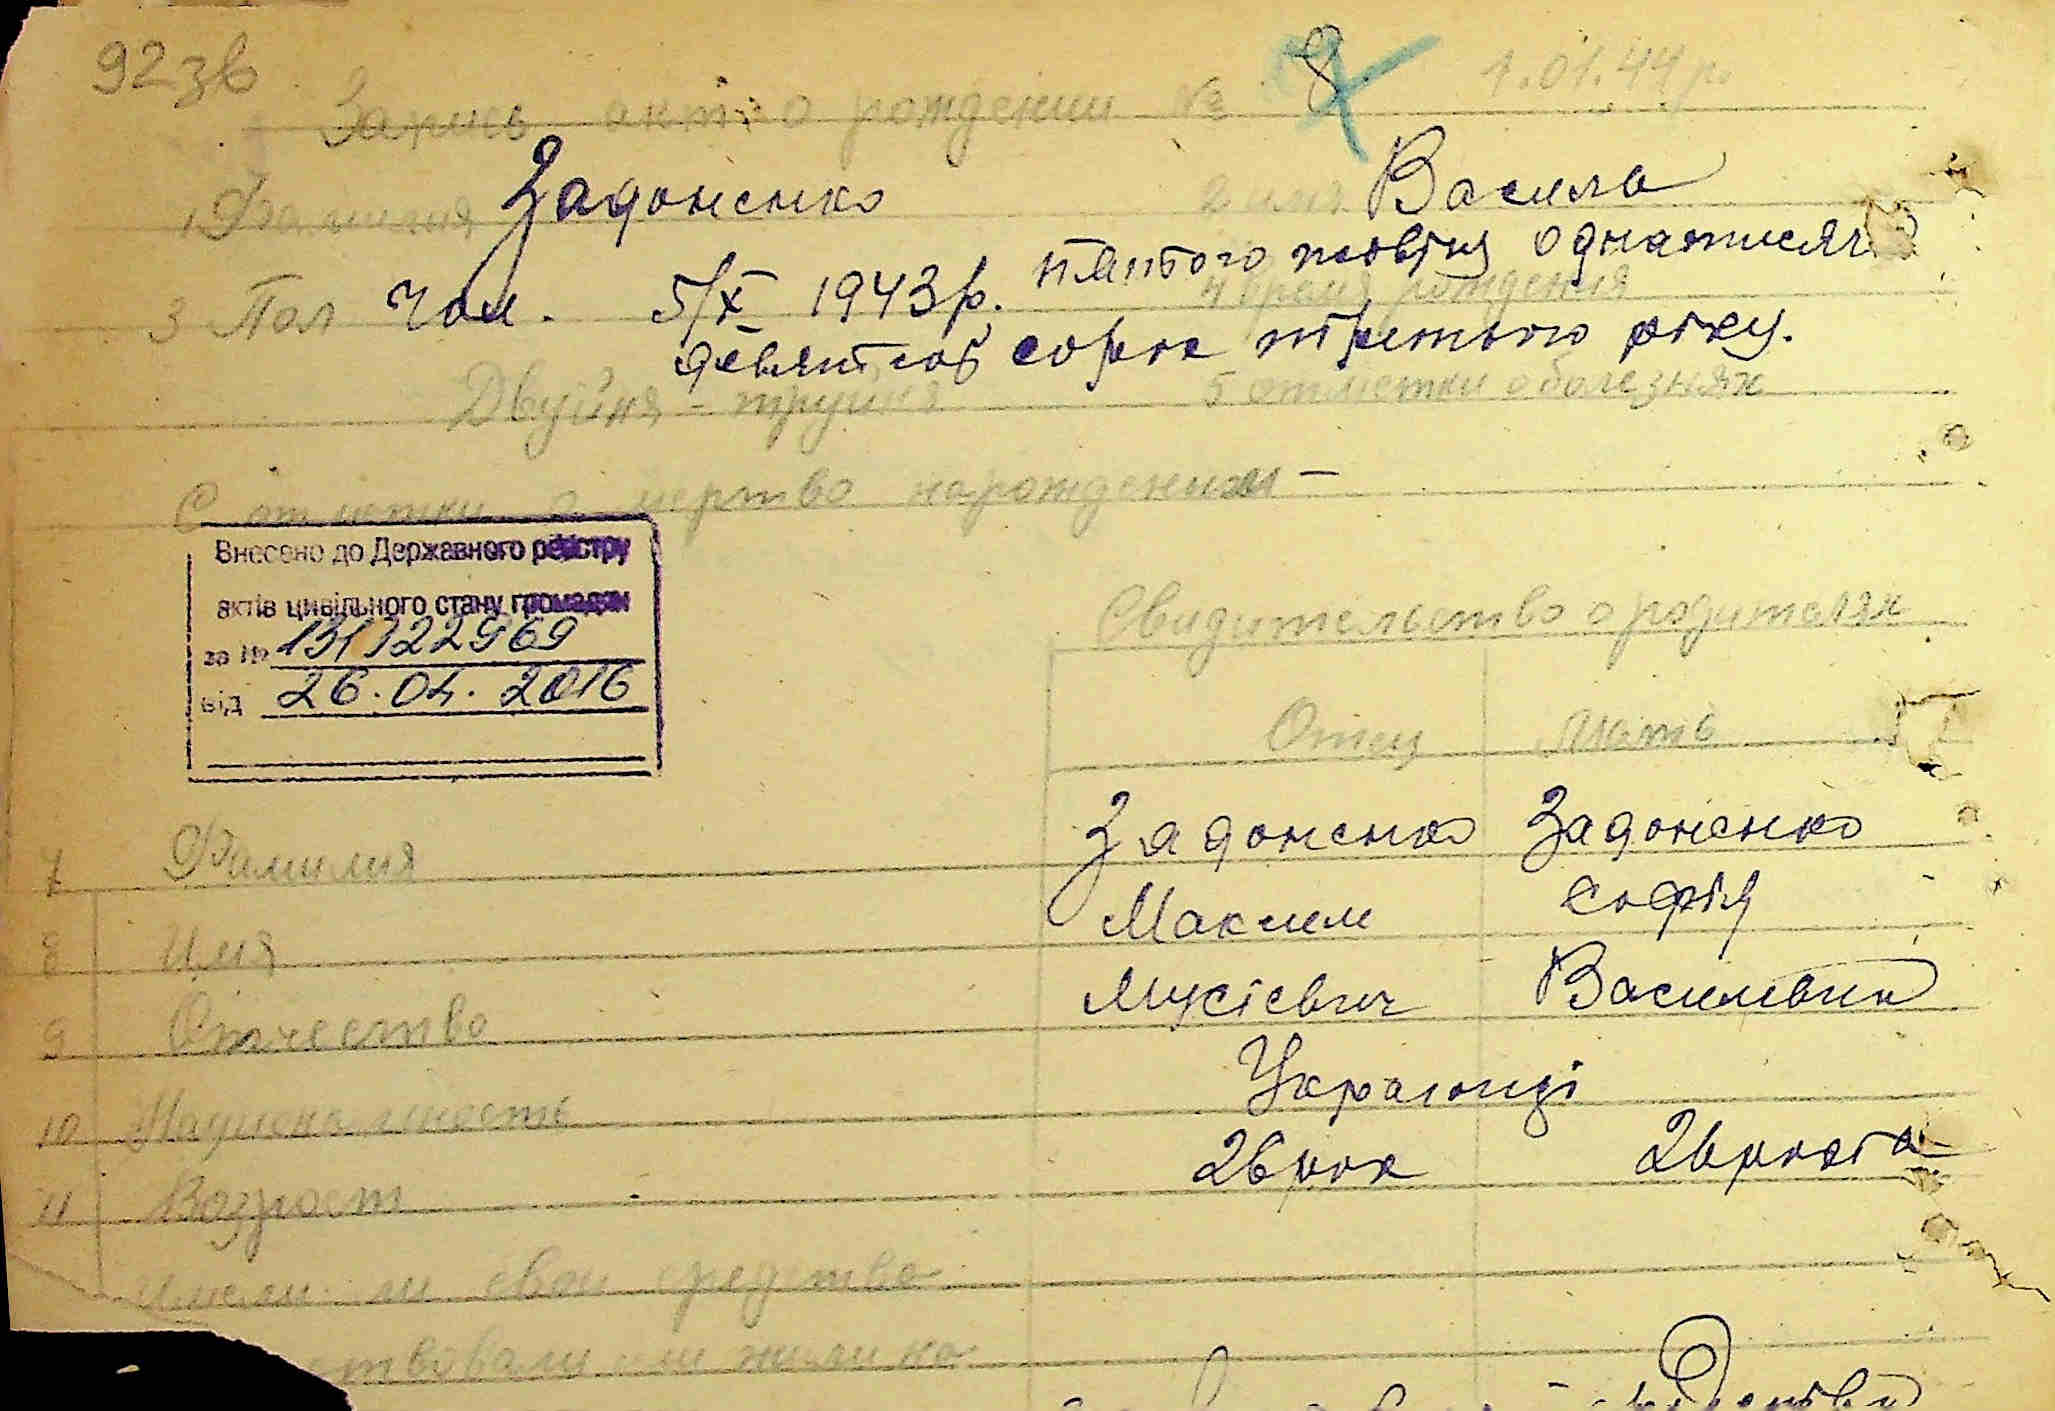 92зв
Запись акта о рождении № 8 1.01.44 р.
1 Фамилия Задоненко 2 имя Василь
3 Пол Чол. 5/X 1943 р. пятого жовтня однатисяч
4 время рождения
девятсот сорок третього року.
Двуйня - труйня 5 отметки о болезнях
6 отметки о мертво нарождении –
Внесено до Державного реєстру
актів цивільного стану громадян
за №
від 26.04.2016
Свидительство о родителях
Отец Мать
7 Фамилия Задоненко Задоненко
8 Имя Максим Софія
9 Отчество Мусієвич Василівна
10 Национальность Українці
11 Возраст 26 рок 26 років
Имели ли свои средства
ствовали или жили на